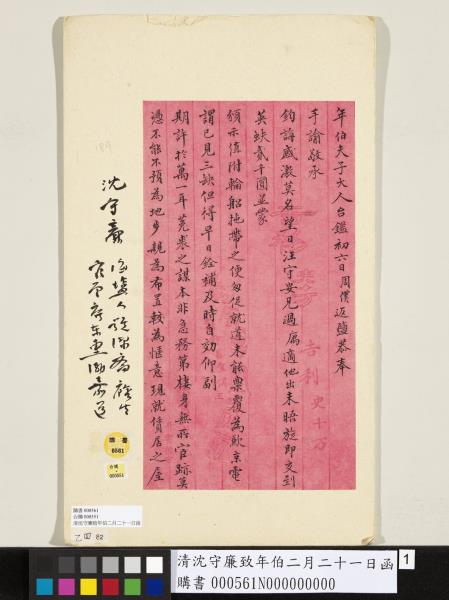 年伯夫子大人台鑑初六日周僕返鹽恭奉
手諭敬承
鈞誨感激莫名望日汪守安兄過廨適他出未晤旋即交到
英蚨貳千圓並蒙
頒示值附輪船拖帶之便匆促就道未能稟覆為歉京電
謂已見三缺但得早日銓補及時自効仰副
期許於萬一耳菟裘之謀本非急務第棲身無所官跡莫
憑不能不預為地步親為布置較為愜意現就賃居之屋
吉利
沈守廉
購書
0561
台購
000551
購書 000561
台購 000551
清沈守廉致年伯二月二十一日函
乙 四 82
清沈守廉致年伯二月二十一日函
購書 000561N000000000
1